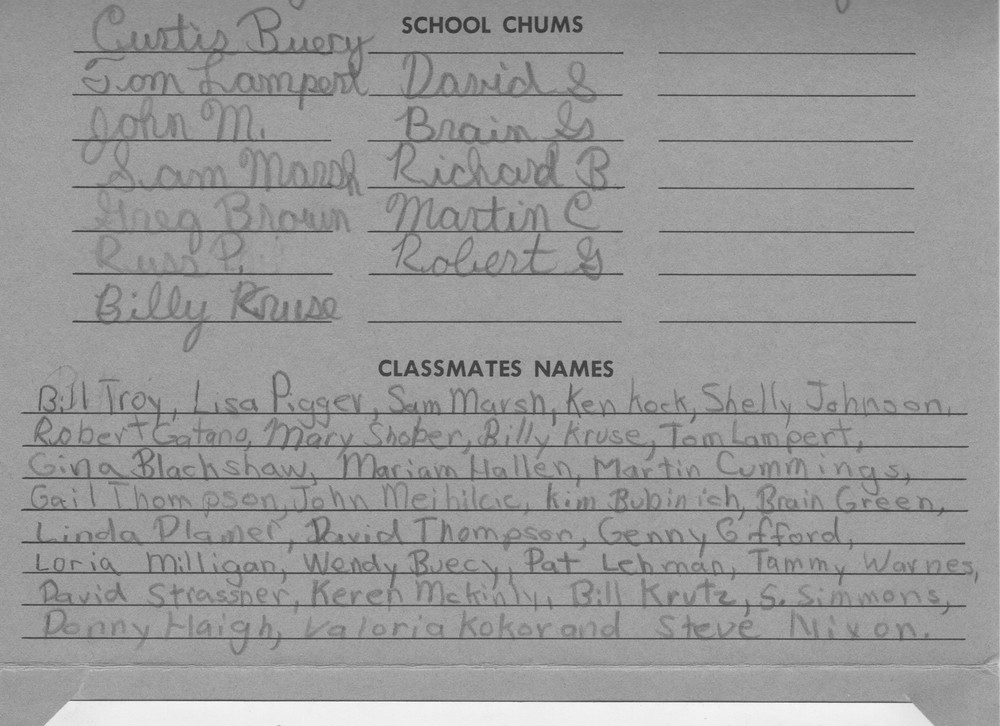 SCHOOL CHUMS
Curtis Buery
Tom Lampert
John M.
Sam Marsh
Greg Brown
Russ P.
Billy Kruse
David S
Brain G
Richard B
Martin C
Robert G
CLASSMATES NAMES
Bill Troy, Lisa Pigger, Sam Marsh, Ken Kock, Shelly Johnson,
Robert Gatano, Mary Shober, Billy Kruse, Tom Lampert,
Gina Blackshaw, Mariam Hallen, Martin Cummings,
Gail Thompson, John Meihilcic, Kim Bubinich, Brain Green,
Linda Plamer, David Thompson, Genny Gifford,
Loria Milligan, Wendy Buecy, Pat Lehman, Tammy Warnes,
David Strassner, Keren Mckinly, Bill Krutz, S. Simmons,
Donny Haigh, Valoria Kokor and Steve Nixon.